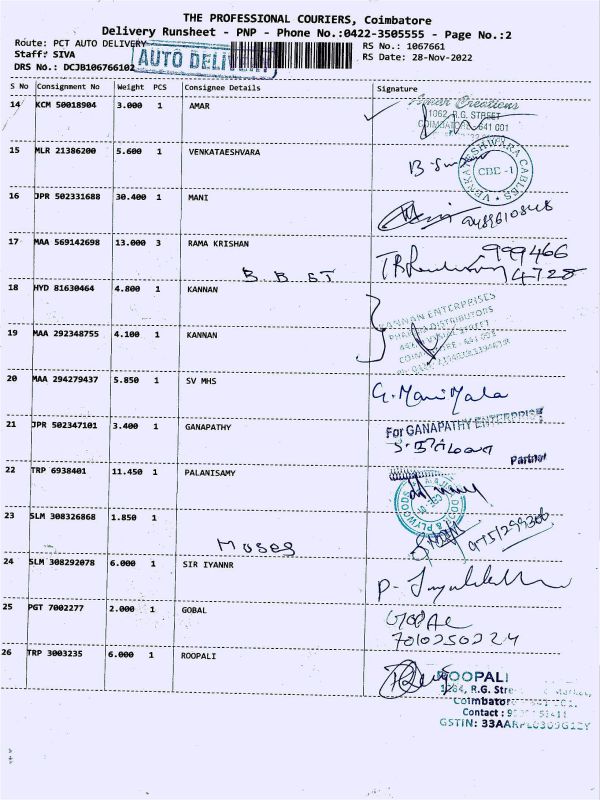 THE PROFESSIONAL COURIERS, Coimbatore
Delivery Runsheet - PNP - Phone No.:0422-3505555 - Page No.:2
Route: PCT AUTO DELIVERY
RS No.: 1067661
Staff: SIVA
AUTO DELIVERY
RS Date: 28-Nov-2022
DRS No.: DCJB106766102
S No Consignment No Weight PCS Consignee Details Signature
14 KCM 50018904 3.000 1 AMAR
Amar Creations
1062, R.G. STREET
COIMBATORE-641 001
15 MLR 21386200 5.600 1 VENKATAESHVARA
VENKATESHWARA CABLES
CBE -1
16 JPR 502331688 30.400 1 MANI
17 MAA 569142698 13.000 3 RAMA KRISHAN
999466
4728
18 HYD 81630464 4.800 1 KANNAN
KANNAN ENTERPRISES
19 MAA 292348755 4.100 1 KANNAN
20 MAA 294279437 5.850 1 SV MHS
G. ManiMala
21 JPR 502347101 3.400 1 GANAPATHY
For GANAPATHY ENTERPRISE
Partner
22 TRP 6938401 11.450 1 PALANISAMY
23 SLM 308326868 1.850 1
Moses
24 SLM 308292078 6.000 1 SIR IYANNR
25 PGT 7002277 2.000 1 GOBAL
GOPAL
7010250224
26 TRP 3003235 6.000 1 ROOPALI
ROOPALI
1264, R.G. Street
Coimbatore
Contact :
GSTIN: